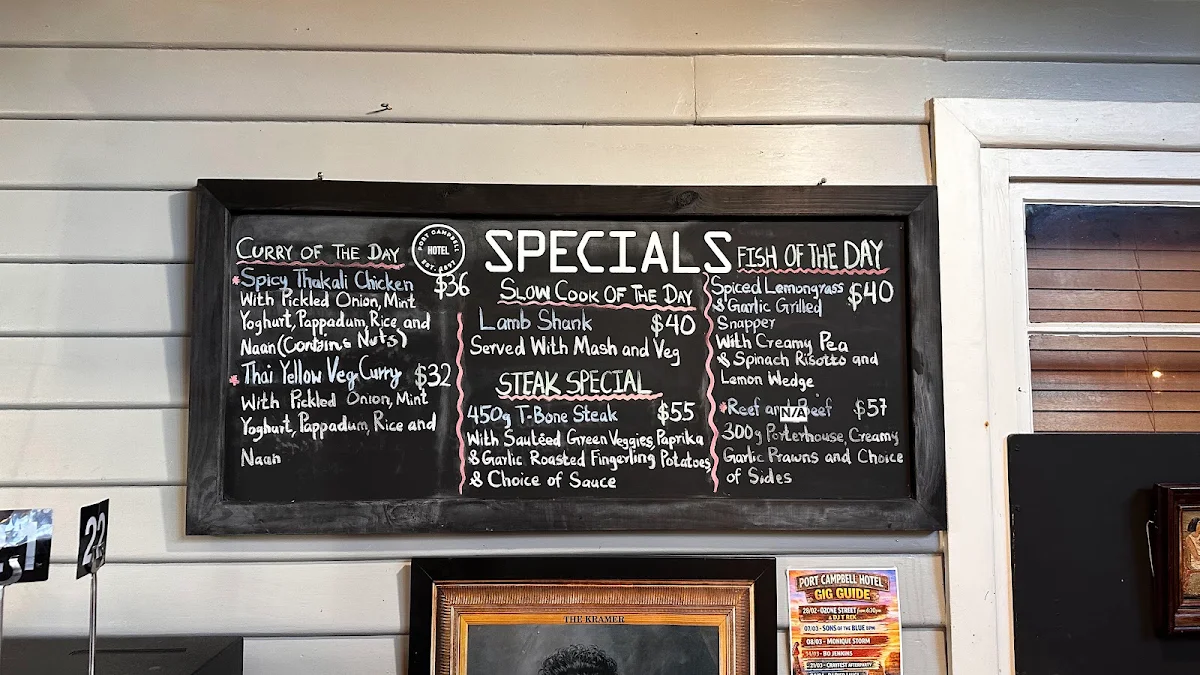 CURRY OF THE DAY
*Spicy Thakali Chicken $36
With Pickled Onion, Mint
Yoghurt, Pappadum, Rice and
Naan (Contains Nuts)
*Thai Yellow Veg Curry $32
With Pickled Onion, Mint
Yoghurt, Pappadum, Rice and
Naan
PORT CAMPBELL
HOTEL
SPECIALS
SLOW COOK OF THE DAY
Lamb Shank $40
Served With Mash and Veg
STEAK SPECIAL
450g T-Bone Steak $55
With Sautéed Green Veggies, Paprika
& Garlic Roasted Fingerling Potatoes,
& Choice of Sauce
FISH OF THE DAY
Spiced Lemongrass $40
& Garlic Grilled
Snapper
With Creamy Pea
& Spinach Risotto and
Lemon Wedge
*Reef and Beef $57
N/A
300g Porterhouse, Creamy
Garlic Prawns and Choice
of Sides
22
THE KRAMER
PORT CAMPBELL HOTEL
GIG GUIDE
28/02 - OZONE STREET from 6:30pm
& DJ T REX
07/03 - SONS OF THE BLUE GUM
08/03 - MONIQUE STORM
14/03 - BO JENKINS
21/03 - CRAYFEST AFTERPARTY